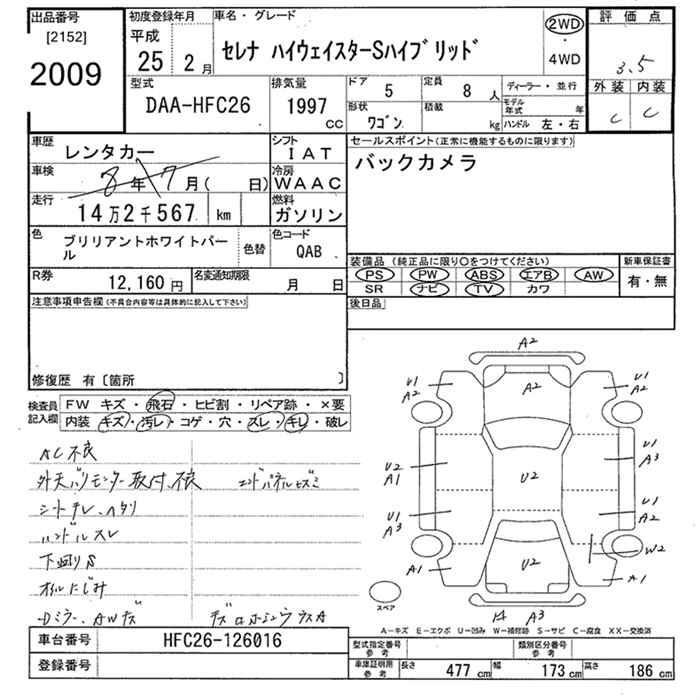 出品番号
[2152]
2009
初度登録年月
平成
25 2月
車名・グレード
セレナ ハイウェイスターSハイブリッド
2WD
・
4WD
評価点
3.5
外装 内装
C C
型式
DAA-HFC26
排気量
1997
CC
ドア
5
定員
8人
形状
ワゴン
積載
kg
ディーラー・並行
モデル年式 年
ハンドル 左・右
車歴
レンタカー
シフト
IAT
車検
8年7月( 日)
冷房
WAAC
走行
14万2千567 km
燃料
ガソリン
色
ブリリアントホワイトパール
色替
色コード
QAB
R券
12,160円
名変通知期限
月 日
セールスポイント(正常に機能するものに限ります)
バックカメラ
装備品 (純正品に限り○をつけてください)
PS PW ABS エアB AW
SR ナビ TV カワ
新車保証書
有・無
後日品
注意事項申告欄(不具合内容等は具体的に記入して下さい)
修復歴 有〔箇所 〕
検査員記入欄
FW キズ・飛石・ヒビ割・リペア跡・×要
内装 キズ・汚レ・コゲ・穴・スレ・キレ・破レ
AC不良
外天バリモンター取付、不良 エンドパネルセズミ
シートチレ、ヘタリ
ハンドルスレ
下廻りS
オイルにじみ
Dミラー、AWキズ
A2
U1
A2
A2
U1
A2
U2
A1
U2
U1
A3
U1
A3
U1
A2
W2
A1
U2
A1
A3
スペア
A―キズ E―エクボ U―凹み W―補修跡 S―サビ C―腐食 XX―交換済
車台番号
HFC26-126016
登録番号
型式指定番号
参考
類別区分番号
参考
車庫証明用
参考
長さ 477cm 幅 173cm 高さ 186cm